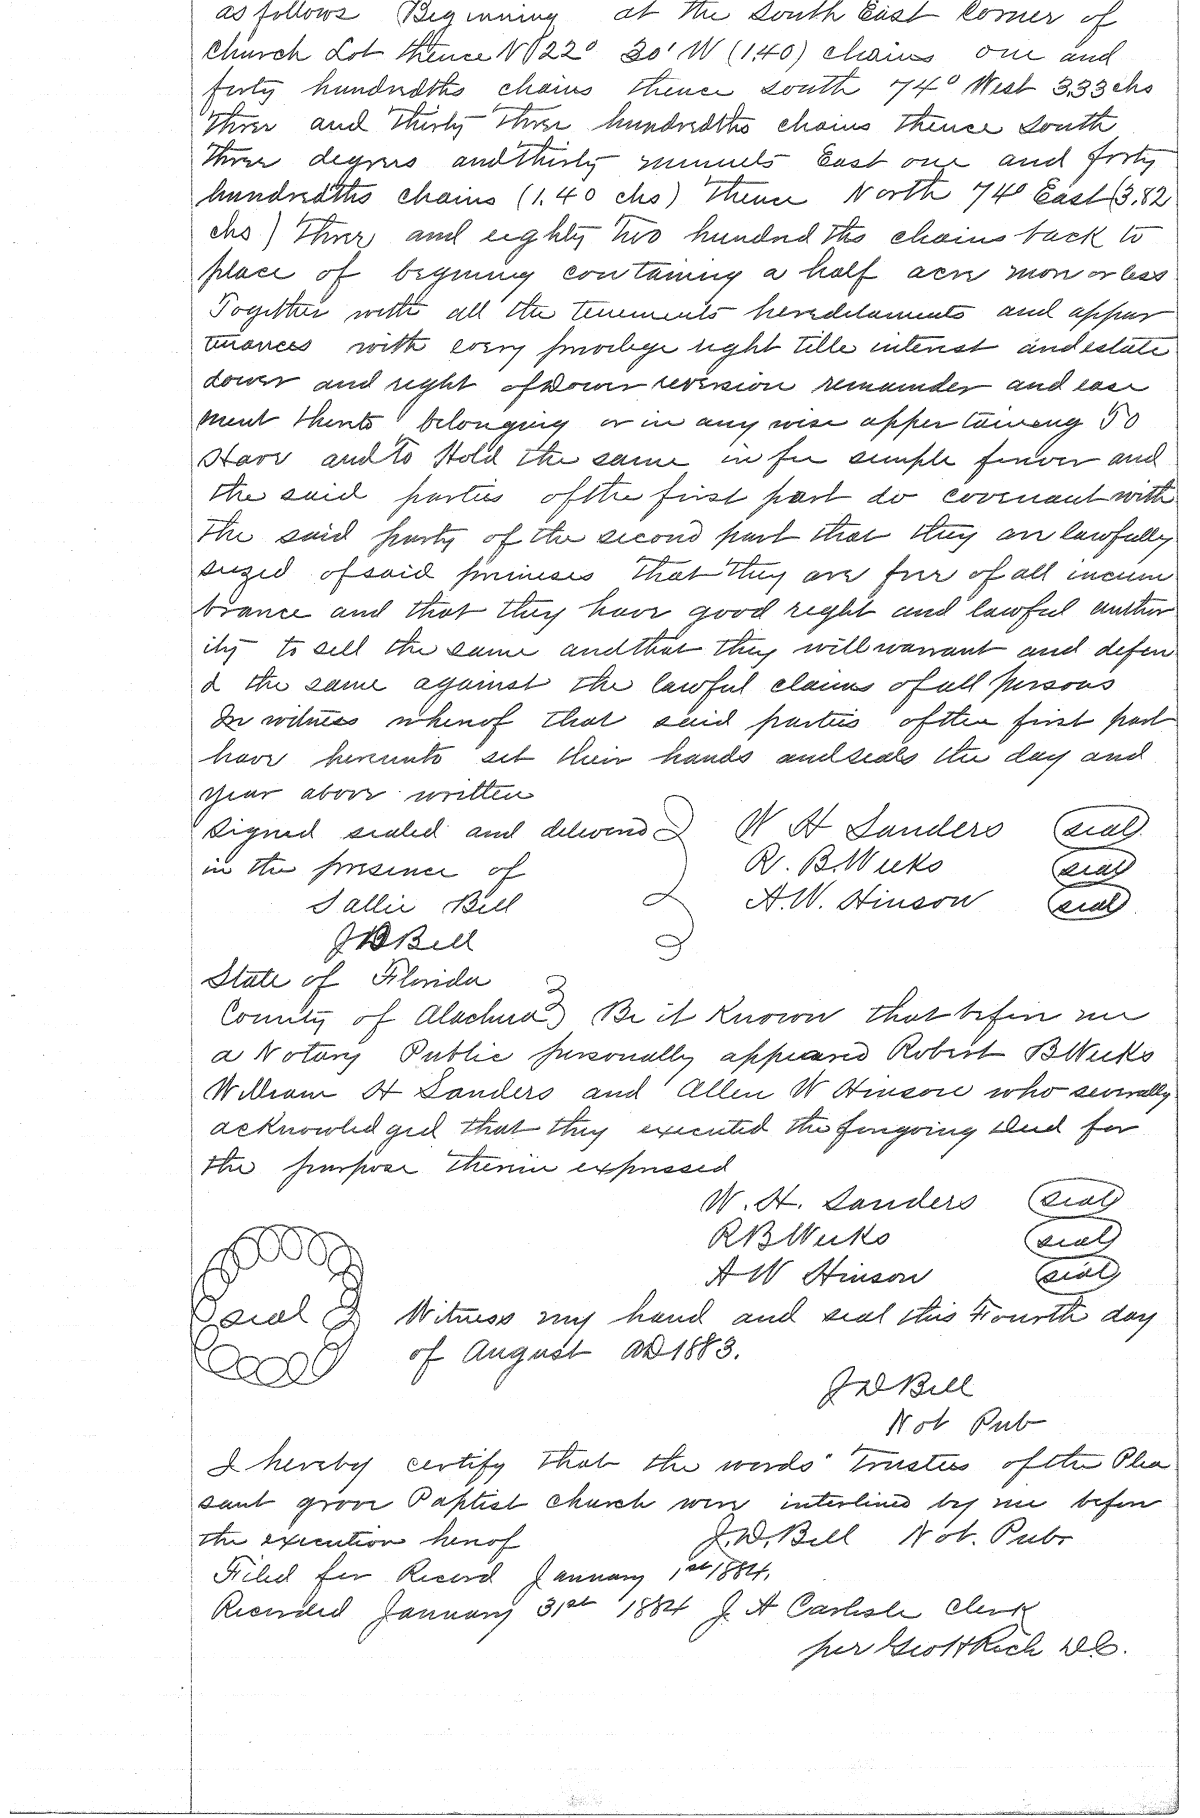 as follows Beginning at the South East Corner of
Church Lot thence N 22° 30' W (1.40) chains one and
forty hundredths chains thence south 74° West 3.33 chs
Three and Thirty Three hundredths chains thence South
Three degrees and Thirty minuets East one and forty
hundredths chains (1.40 chs) Thence North 74° East (3.82
chs) Three and eighty Two hundredths chains back to
place of begining containing a half acre more or less
Together with all the tenements heredetaments and appur
tenances with every privilege right title interest and estate
dower and right of Dower reversion remainder and ease
ment thereto belonging or in any wise appertaineng To
Have and To Hold the same in fee simple forever and
the said parties of the first part do covenant with
the said party of the second part that they are lawfully
seized of said premises that they are free of all incum
brance and that they have good right and lawful author
ity to sell the same and that they will warrant and defen
d the same against the lawful claims of all persons
In witness whereof that said parties of the first part
have hereunto set their hands and seals the day and
year above written
Signed sealed and delivered W H Sanders seal
in the presence of R. B. Weeks seal
Sallie Bill A. W. Hinson seal
J D Bell
State of Florida
County of Alachua Be it Known that before me
a Notary Public personally appeared Robert B Weeks
William H Sanders and Allen W Hinson who severally
acknowledged that they executed the foregoing Deed for
the purpose Therein expressed
W. H. Sanders seal
R B Weeks seal
A W Hinson seal
seal Witness my hand and seal this Fourth day
of August AD 1883.
J D Bell
Not Pub
I hereby certify that the words "Trustees of the Plea
sant grove Baptist church were interlined by me before
the execution hereof J. D. Bell Not. Pub.
Filed for Record January 1st 1884.
Recorded January 31st 1884 J. A Carlisle Clerk
per Geo H Rich D.C.